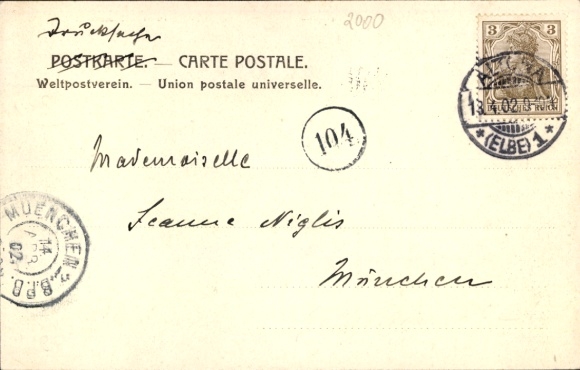 2000
Drucksache
POSTKARTE. — CARTE POSTALE.
Weltpostverein. — Union postale universelle.
3
13.4.02
*(ELBE) 1*
104
Mademoiselle
Jeanne Niglis
München
MUENCHEN
14
APR
02
B.P.B.